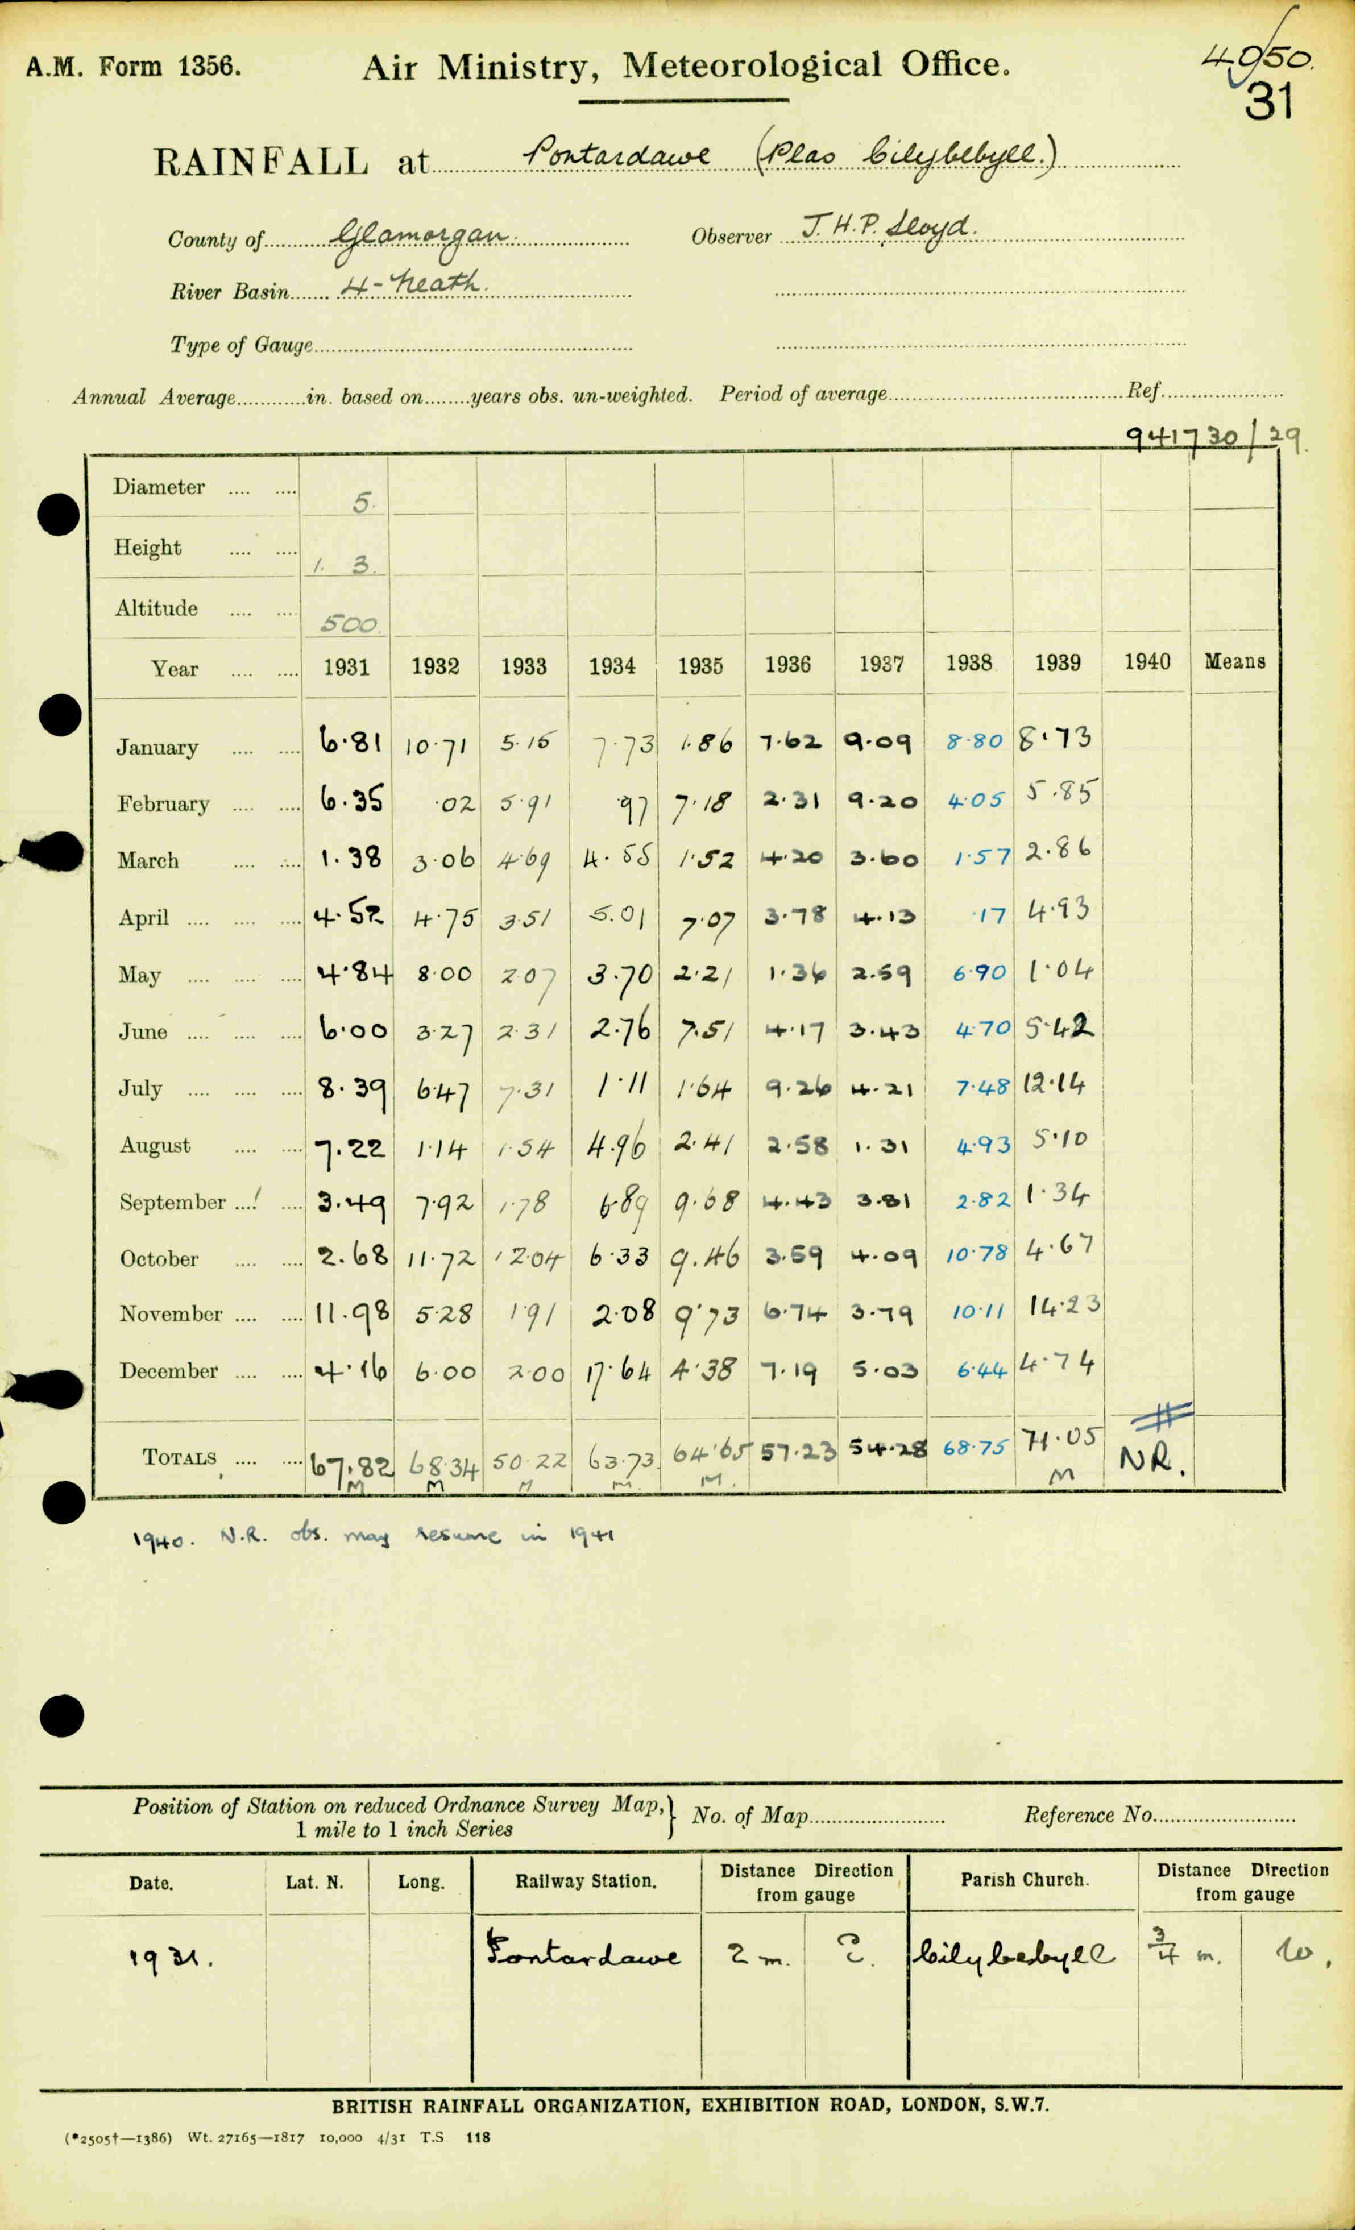 A.M. Form 1356.
Air Ministry, Meteorological Office.
4950.
31
RAINFALL at Pontardawe (Plas Cilybebyll.)
County of Glamorgan. Observer J.H.P. Lloyd.
River Basin 4-Neath.
Type of Gauge
Annual Average in. based on years obs. un-weighted. Period of average Ref.
941730/29.
Diameter 5.
Height 1. 3.
Altitude 500.
Year 1931 1932 1933 1934 1935 1936 1937 1938 1939 1940 Means
January 6.81 10.71 5.15 7.73 1.86 7.62 9.09 8.80 8.73
February 6.35 .02 5.91 .97 7.18 2.31 9.20 4.05 5.85
March 1.38 3.06 4.69 4.55 1.52 4.20 3.60 1.57 2.86
April 4.52 4.75 3.51 5.01 7.07 3.78 4.13 .17 4.93
May 4.84 8.00 2.07 3.70 2.21 1.36 2.59 6.90 1.04
June 6.00 3.27 2.31 2.76 7.51 4.17 3.43 4.70 5.42
July 8.39 6.47 7.31 1.11 1.64 9.26 4.21 7.48 12.14
August 7.22 1.14 1.54 4.96 2.41 2.58 1.31 4.93 5.10
September 3.49 7.92 1.78 6.89 9.68 4.43 3.81 2.82 1.34
October 2.68 11.72 12.04 6.33 9.46 3.59 4.09 10.78 4.67
November 11.98 5.28 1.91 2.08 9.73 6.74 3.79 10.11 14.23
December 4.16 6.00 2.00 17.64 4.38 7.19 5.03 6.44 4.74
TOTALS 67.82 68.34 50.22 63.73 64.65 57.23 54.28 68.75 71.05 NR.
M M M M. M. M
1940. N.R. obs. may resume in 1941
Position of Station on reduced Ordnance Survey Map, 1 mile to 1 inch Series } No. of Map Reference No.
Date. Lat. N. Long. Railway Station. Distance Direction from gauge Parish Church. Distance Direction from gauge
1931. Pontardawe 2 m. E. Cilybebyll 3/4 m. W.
BRITISH RAINFALL ORGANIZATION, EXHIBITION ROAD, LONDON, S.W.7.
(*2505†—1386) Wt. 27165—1817 10,000 4/31 T.S 118